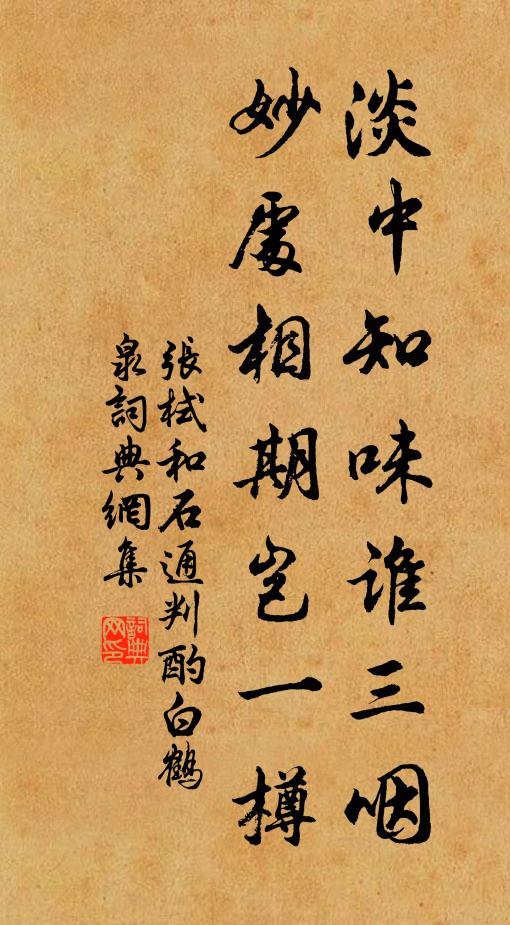 淡中知味誰三咽
妙處相期豈一樽
張栻和石通判酌白鶴
泉詞典網集
詞典網印